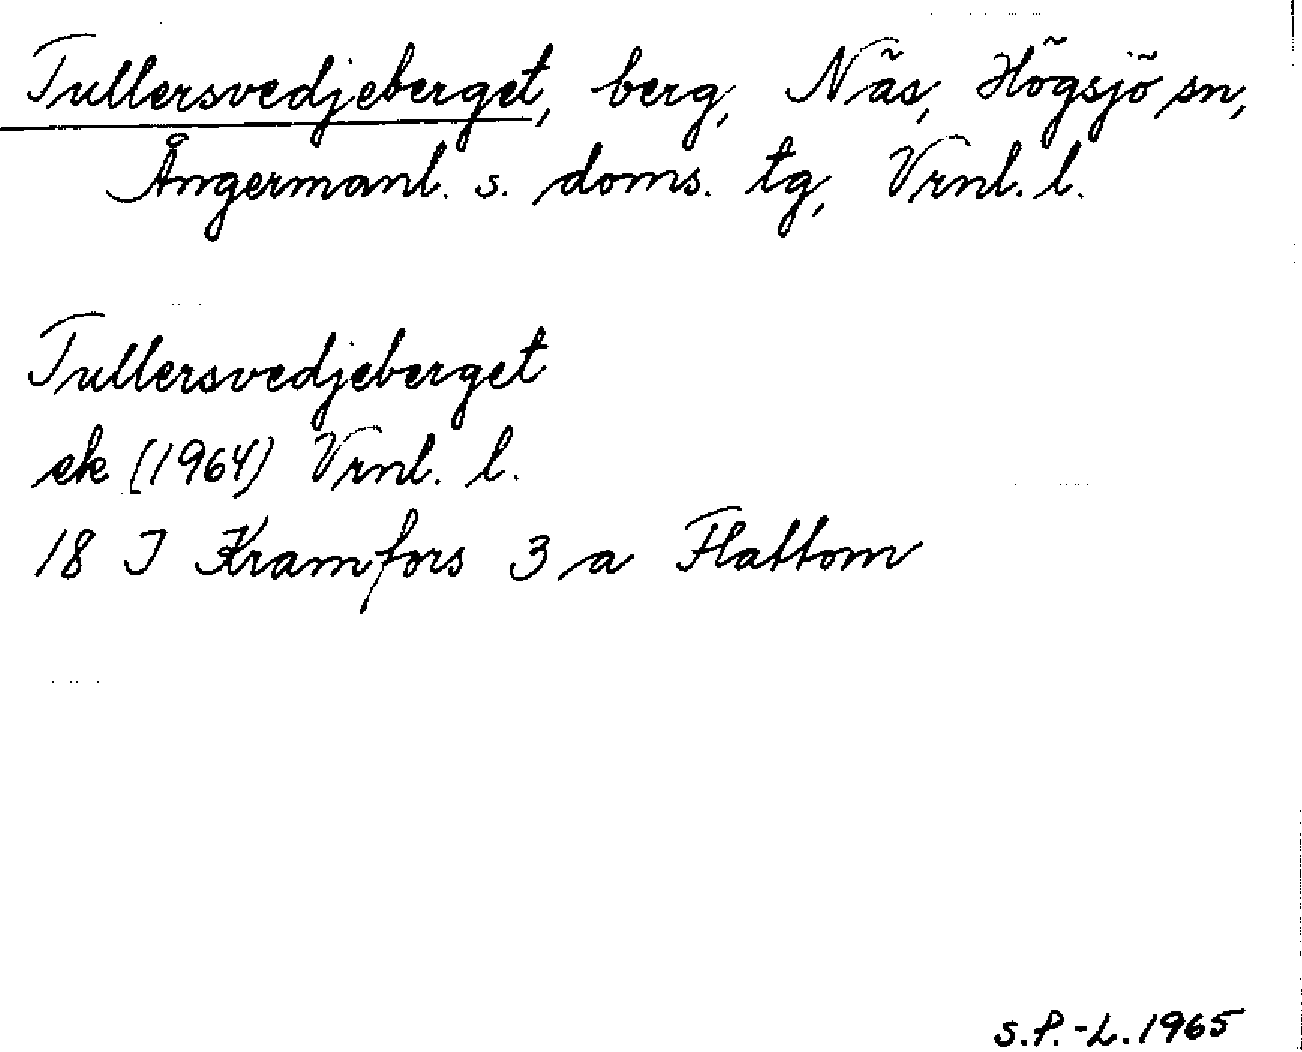 Tullersvedjeberget, berg, Näs, Högsjö sn,
Ångermanl. s. doms. tg, Vrnl. l.
Tullersvedjeberget
ek (1964) Vrnl. l.
18 I Kramfors 3 a Flattom
S.P.-L. 1965